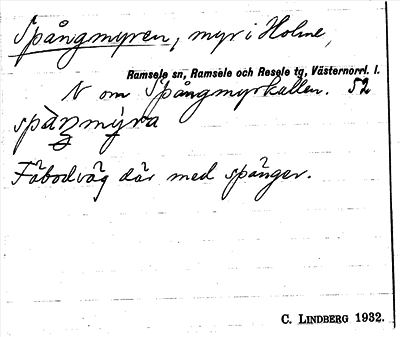 Spångmyren, myr i Holme,
Ramsele sn, Ramsele och Resele tg, Västernorrl. l.
N om Spångmyrkallen. 52
Fäbodväg där med spänger.
C. LINDBERG 1932.